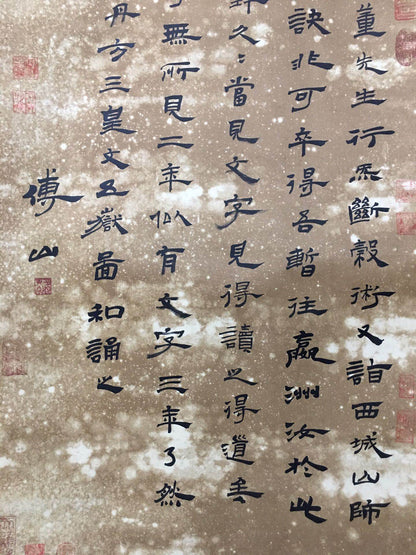 董先生行炁斷穀術又詣西城山師
訣非可卒得吾暫往瀛洲汝於此
久久當見文字見得讀之得道矣
無所見二年似有文字三年了然
丹方三皇文五嶽圖和誦之
傅山